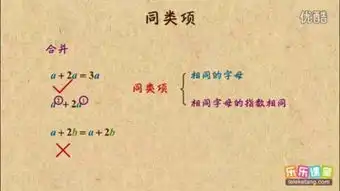 同类项
优酷
合并
a + 2a = 3a
a① + 2a①
同类项
相同的字母
相同字母的指数相同
a + 2b = a + 2b
乐乐课堂
leleketang.com